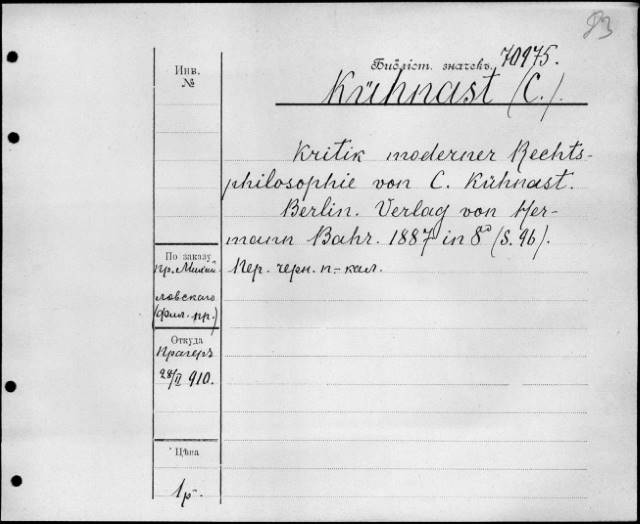 93
Инв.
№
Библіот. значекъ. 70975.
Kühnast (C.).
Kritik moderner Rechts-
philosophie von C. Kühnast.
Berlin. Verlag von Her-
mann Bahr. 1887 in 8° (S. 96).
Пер. черн. п.-кал.
По заказу
пр. Михай
ловскаго
(фил. пр.)
Откуда
Прагеръ
28/II 910.
Цѣна
1р.